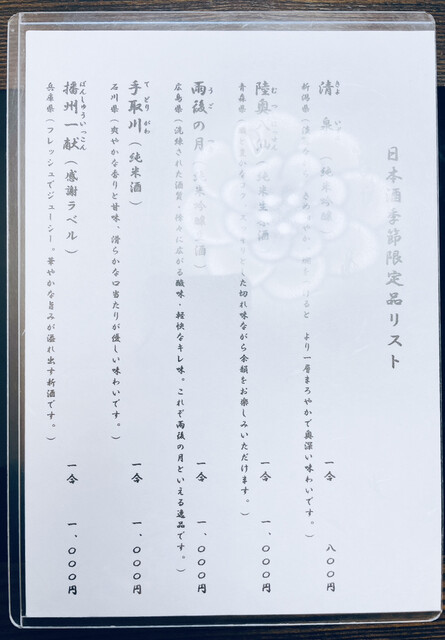 日本酒季節限定品リスト
清 泉 (純米吟醸) 一合 八〇〇円
きよ いずみ
新潟県 より一層まろやかで奥深い味わいです。)
陸奥 (純米生 酒 一合 一、〇〇〇円
むつ
青森県 した切れ味ながら余韻をお楽しみいただけます。)
雨後の月 純米吟醸 酒) 一合 一、〇〇〇円
うご
広島県(洗練された酒質・徐々に広がる酸味・軽快なキレ味。これぞ雨後の月といえる逸品です。)
手取川(純米酒) 一合 一、〇〇〇円
てどりがわ
石川県(爽やかな香りと甘味、滑らかな口当たりが優しい味わいです。)
播州一献(感謝ラベル) 一合 一、〇〇〇円
ばんしゅういっこん
兵庫県(フレッシュでジューシー。華やかな旨みが溢れ出す新酒です。)